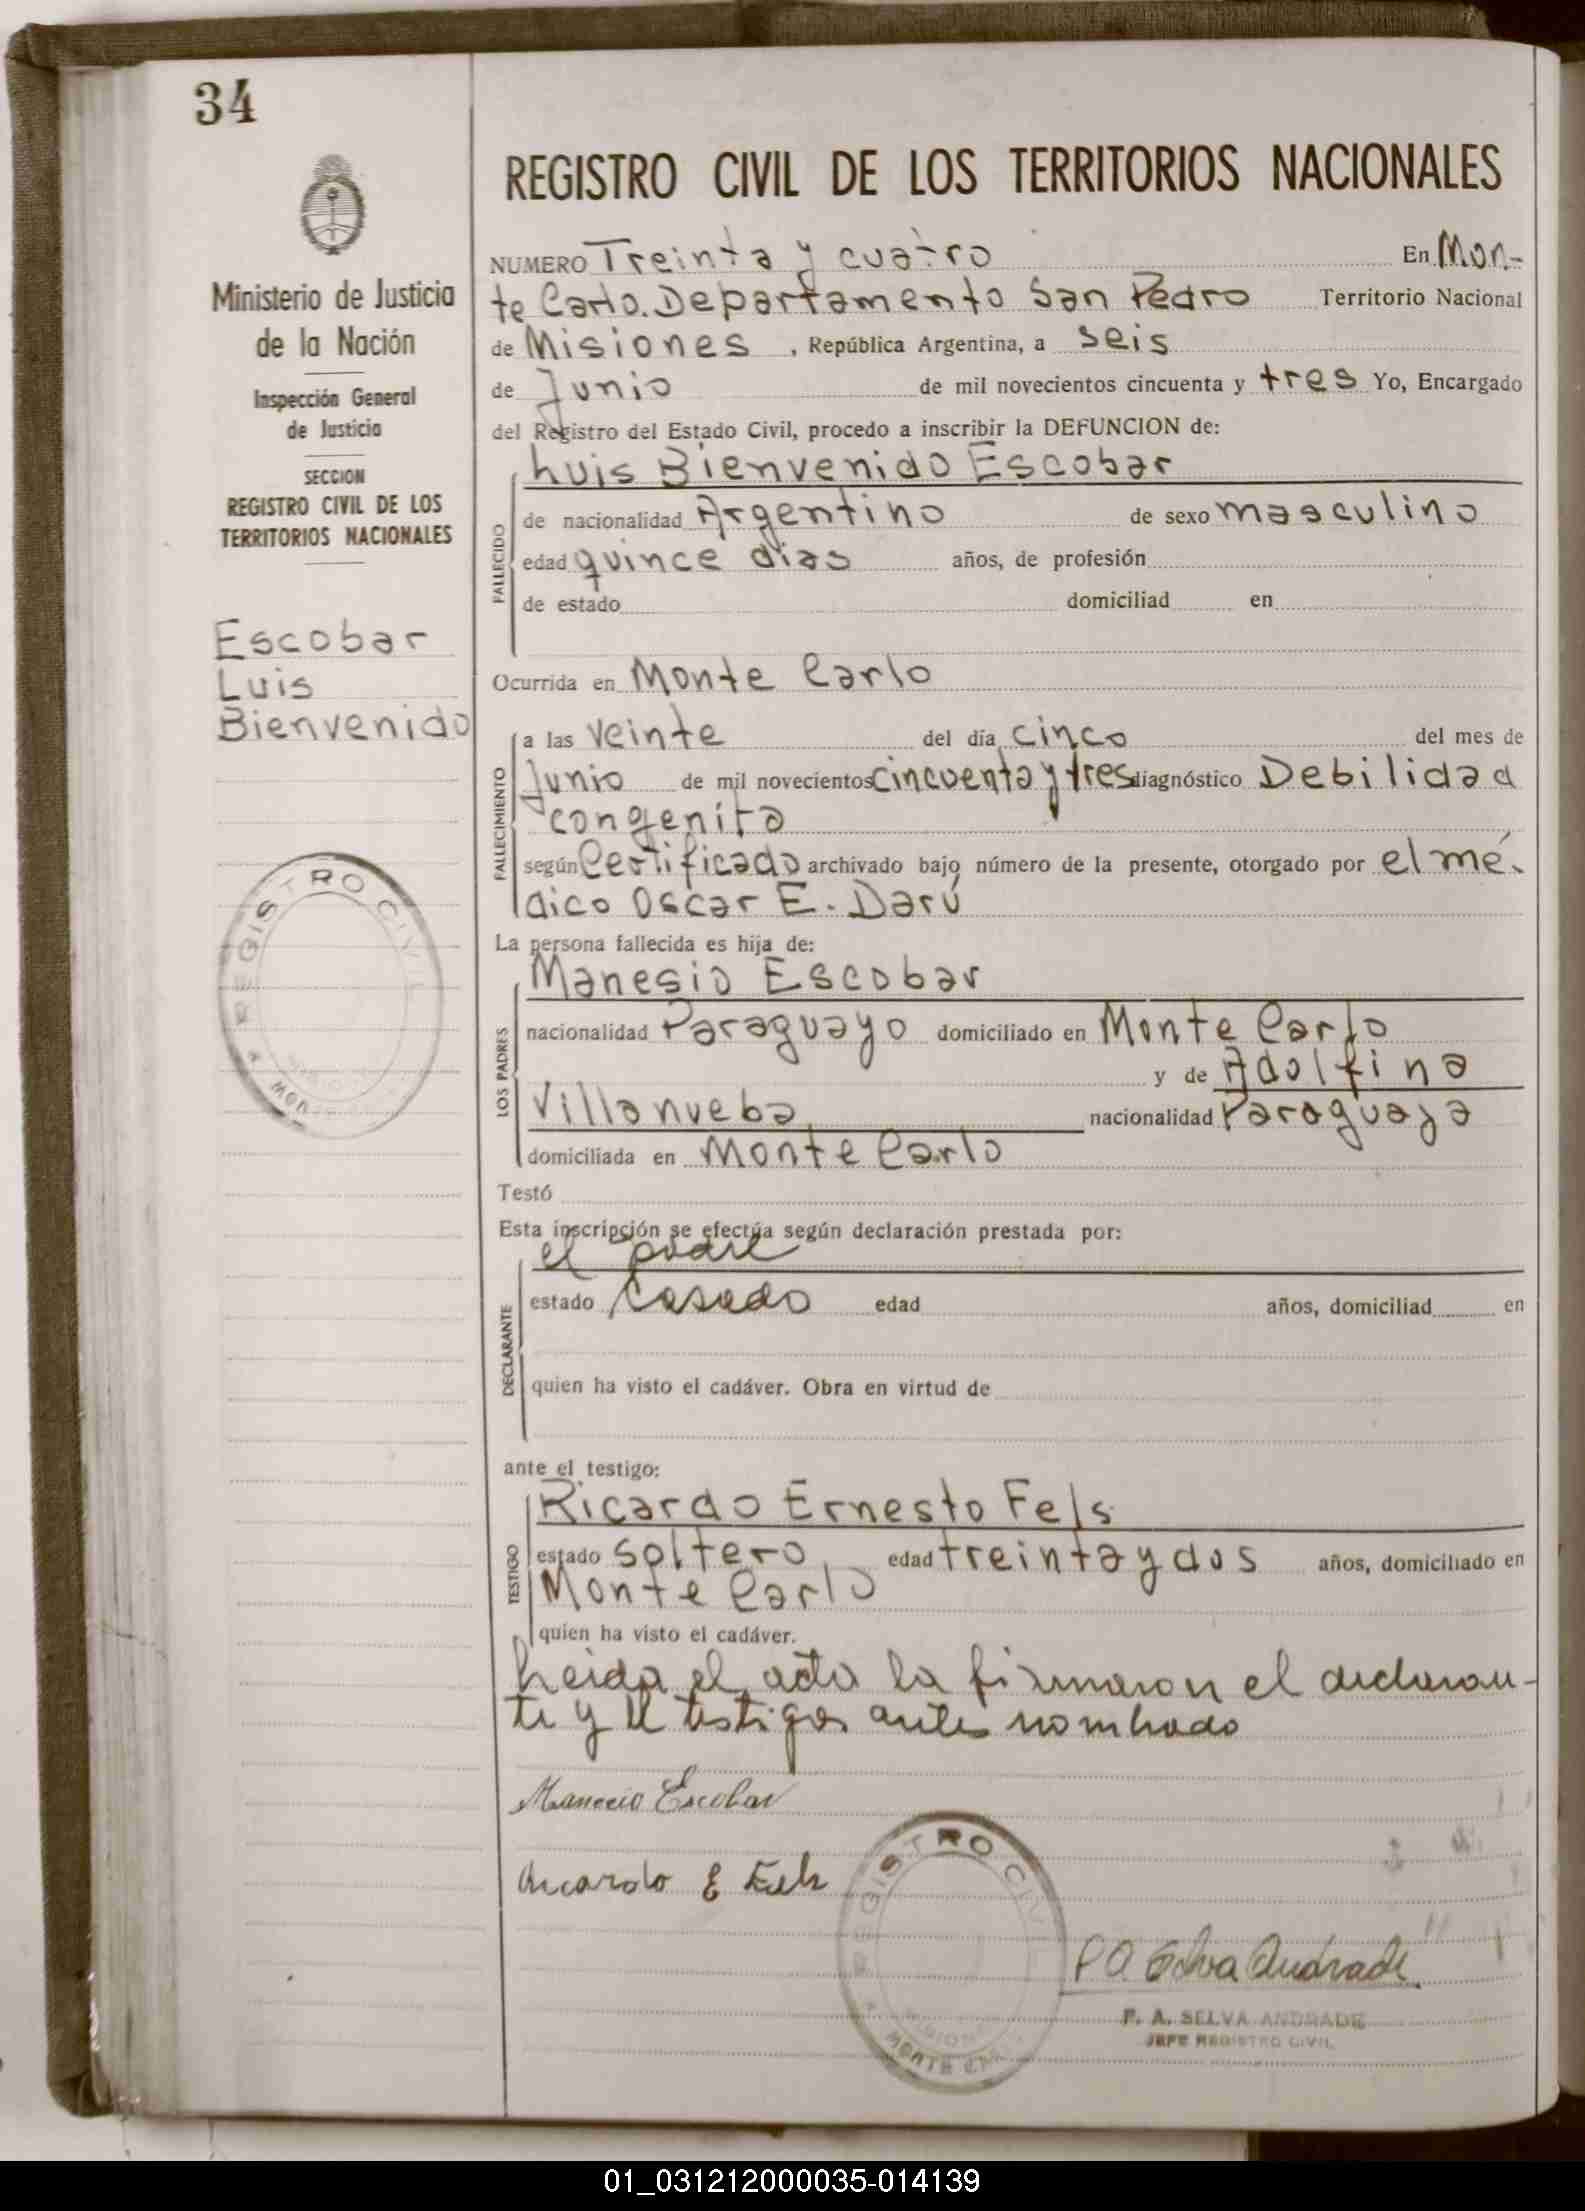 34
Ministerio de Justicia
de la Nación
Inspección General
de Justicia
SECCION
REGISTRO CIVIL DE LOS
TERRITORIOS NACIONALES
Escobar
Luis
Bienvenido
REGISTRO CIVIL
MONTE
REGISTRO CIVIL DE LOS TERRITORIOS NACIONALES
NUMERO Treinta y cuatro En Mon-
te Carlo. Departamento San Pedro Territorio Nacional
de Misiones, República Argentina, a seis
de Junio de mil novecientos cincuenta y tres Yo, Encargado
del Registro del Estado Civil, procedo a inscribir la DEFUNCION de:
FALLECIDO
Luis Bienvenido Escobar
de nacionalidad Argentino de sexo masculino
edad quince dias años, de profesión
de estado domiciliad en
Ocurrida en Monte Carlo
FALLECIMIENTO
a las veinte del día cinco del mes de
Junio de mil novecientos cincuenta y tres diagnóstico Debilidad
congenita
según Certificado archivado bajo número de la presente, otorgado por el mé-
dico Oscar E. Darú
La persona fallecida es hija de:
LOS PADRES
Manesio Escobar
nacionalidad Paraguayo domiciliado en Monte Carlo
y de Adolfina
Villanueba nacionalidad Paraguaya
domiciliada en Monte Carlo
Testó
Esta inscripción se efectúa según declaración prestada por:
DECLARANTE
el padre
estado Casado edad años, domiciliad en
quien ha visto el cadáver. Obra en virtud de
ante el testigo:
TESTIGO
Ricardo Ernesto Fels
estado soltero edad treinta y dos años, domiciliado en
Monte Carlo
quien ha visto el cadáver.
Leida el acta la firmaron el declaran-
te y el testigo antes nombrado
Manecio Escobar
Ricardo E Fels
REGISTRO CIVIL
MONTE CARLO
P A Selva Andrade
P. A. SELVA ANDRADE
JEFE REGISTRO CIVIL
01_031212000035-014139